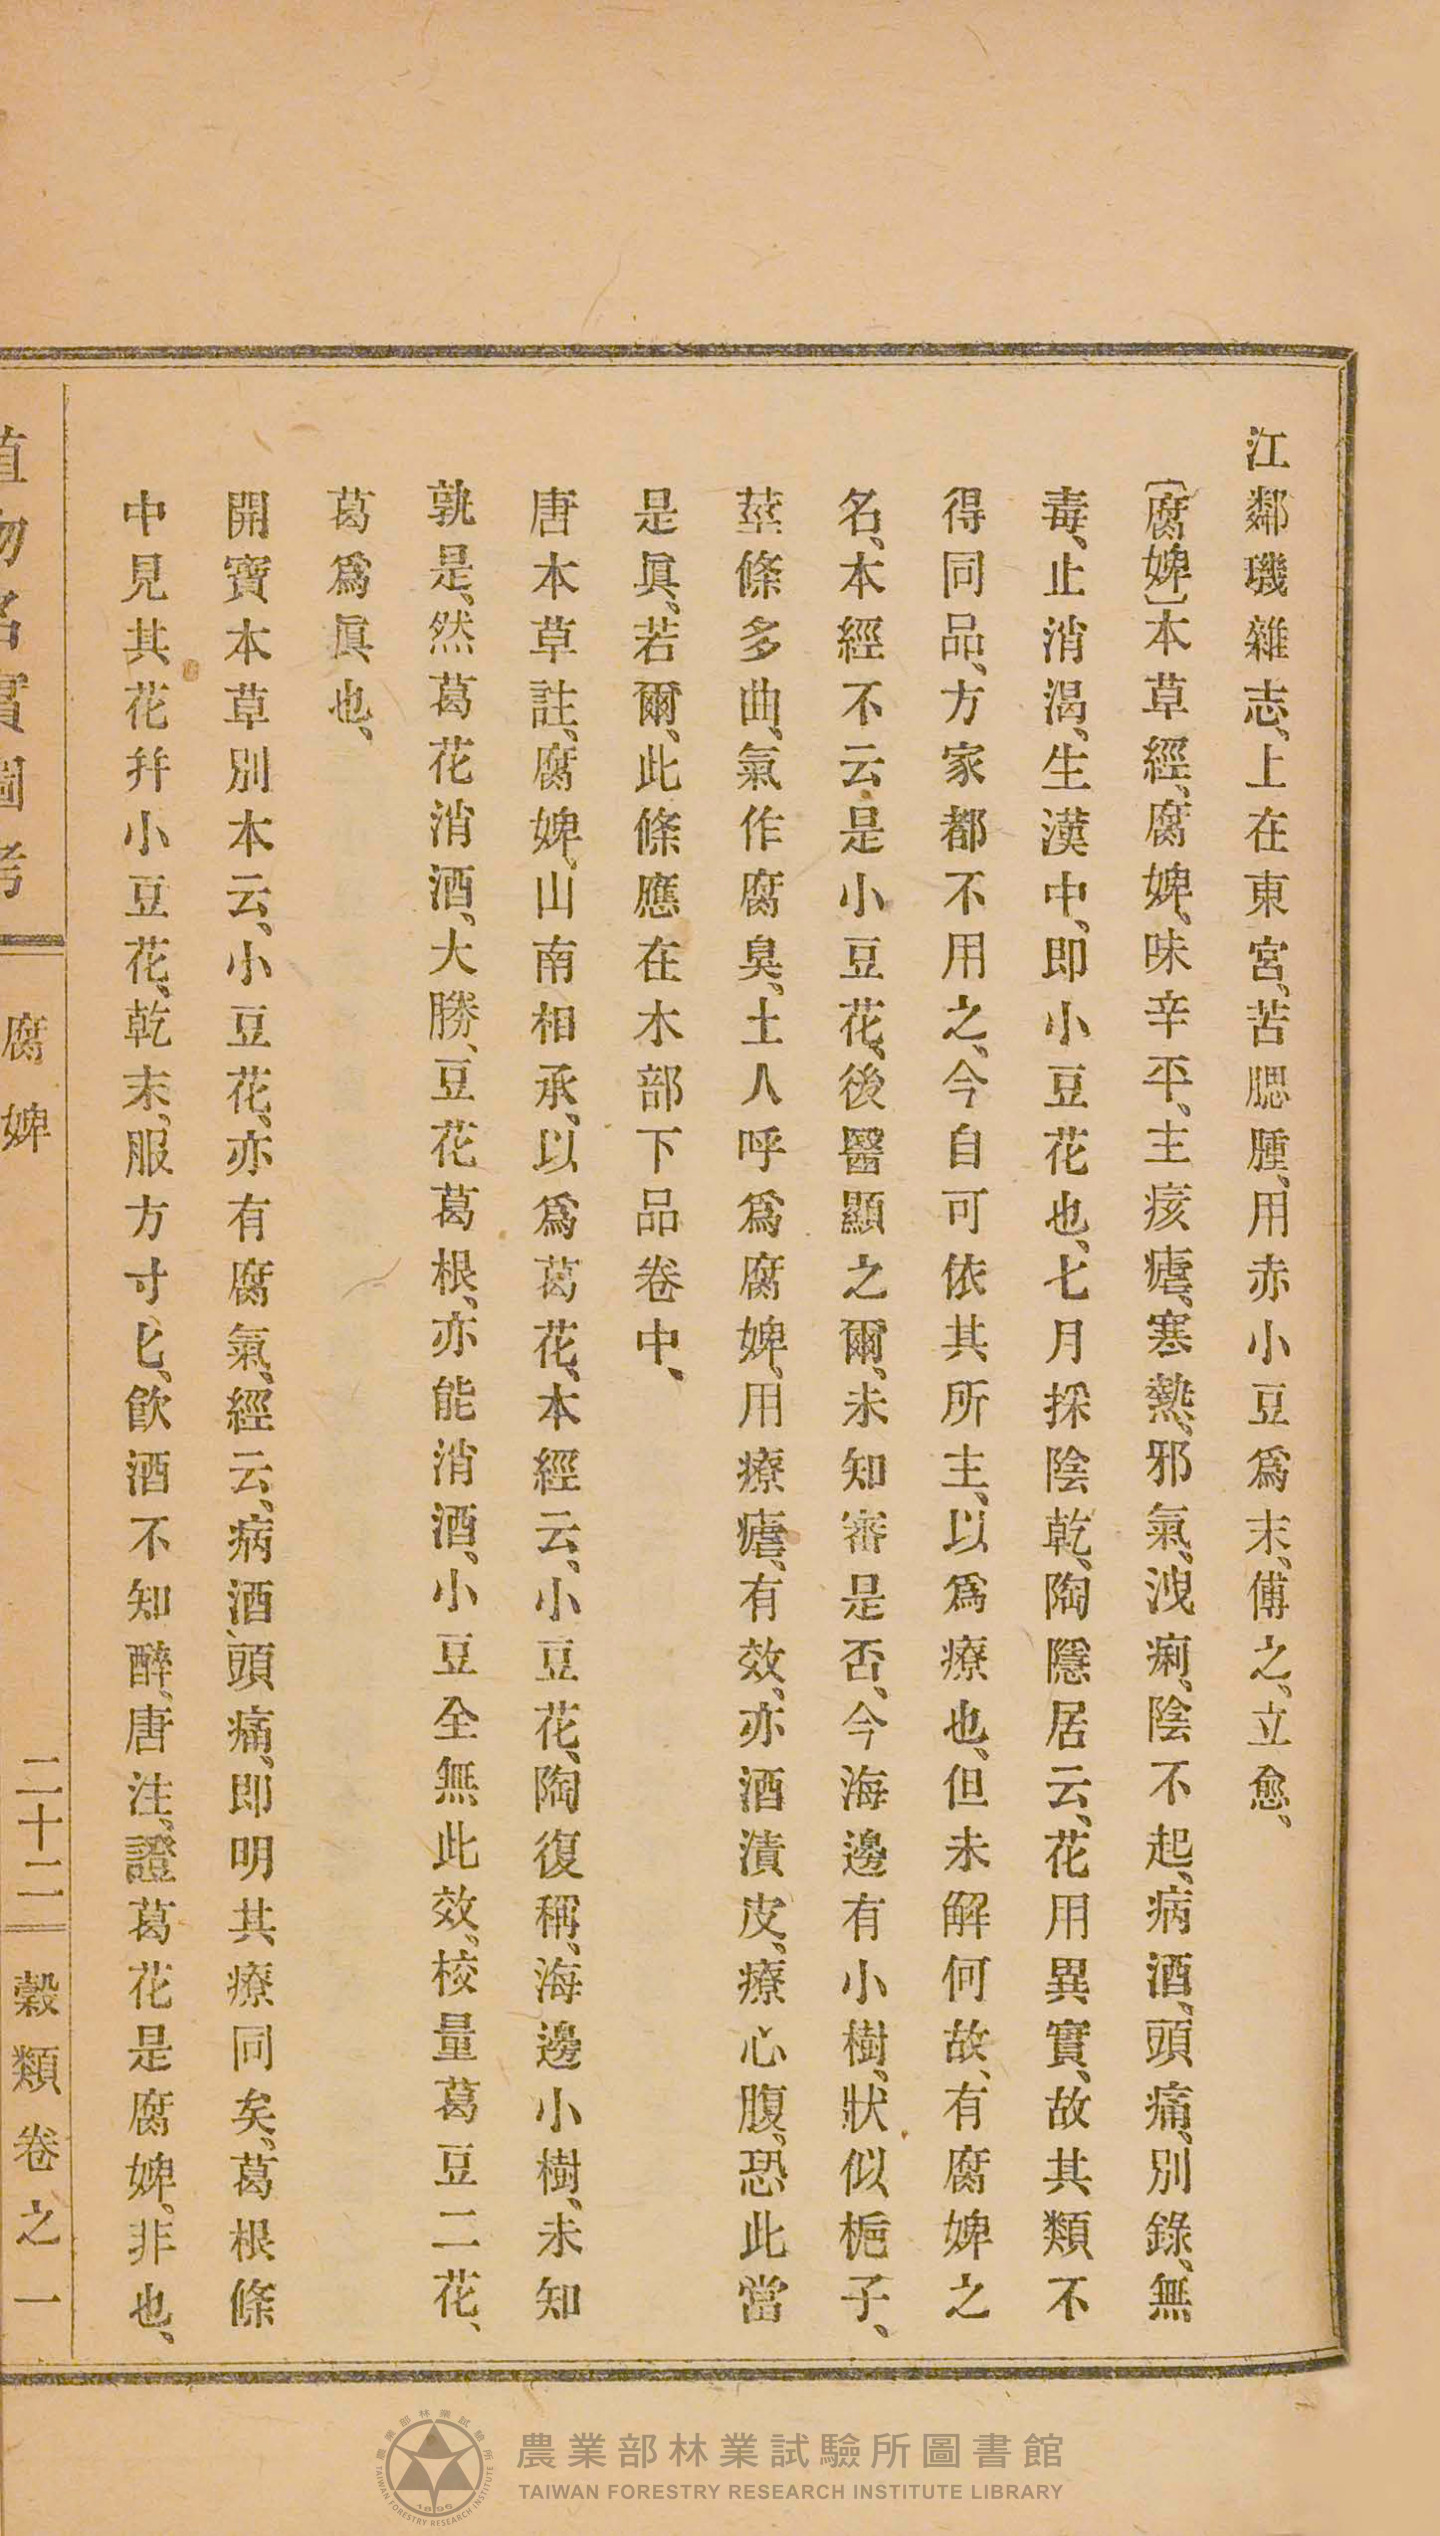 江鄰璣雜志、上在東宮、苦腮腫、用赤小豆爲末、傅之、立愈、
〔腐婢〕本草經、腐婢、味辛平、主痎瘧、寒熱、邪氣、洩痢、陰不起、病酒、頭痛、別錄、無
毒、止消渴、生漢中、卽小豆花也、七月採陰乾、陶隱居云、花用異實、故其類不
得同品、方家都不用之、今自可依其所主、以爲療也、但未解何故、有腐婢之
名、本經不云是小豆花、後醫顯之爾、未知審是否、今海邊有小樹、狀似梔子、
莖條多曲、氣作腐臭、土人呼爲腐婢、用療瘧、有效、亦酒漬皮、療心腹、恐此當
是眞、若爾、此條應在木部下品卷中、
唐本草註、腐婢、山南相承、以爲葛花、本經云、小豆花、陶復稱、海邊小樹、未知
孰是、然葛花消酒、大勝、豆花葛根、亦能消酒、小豆全無此效、校量葛豆二花、
葛爲眞也、
開寶本草別本云、小豆花、亦有腐氣、經云、病酒、頭痛、卽明其療同矣、葛根條
中見其花幷小豆花、乾末、服方寸匕、飮酒不知醉、唐注、證葛花是腐婢、非也、
植物名實圖考 腐婢 二十二 穀類卷之一
農業部林業試驗所圖書館
TAIWAN FORESTRY RESEARCH INSTITUTE LIBRARY
農業部林業試驗所
TAIWAN FORESTRY RESEARCH INSTITUTE
1896